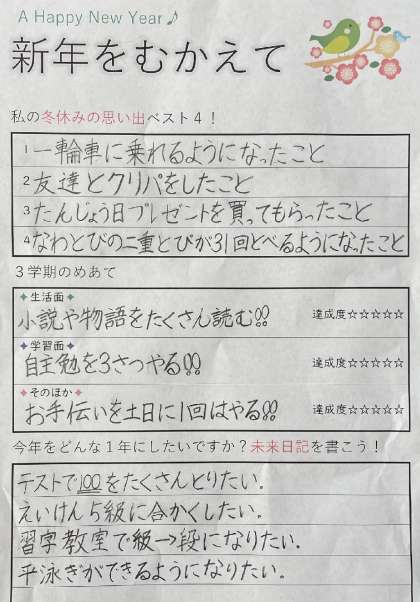 A Happy New Year♪
新年をむかえて
私の冬休みの思い出ベスト4！
1 一輪車に乗れるようになったこと
2 友達とクリパをしたこと
3 たんじょう日プレゼントを買ってもらったこと
4 なわとびの二重とびが31回とべるようになったこと
3学期のめあて
✦生活面✦
小説や物語をたくさん読む!! 達成度☆☆☆☆☆
✦学習面✦
自主勉を3さつやる!! 達成度☆☆☆☆☆
✦そのほか✦
お手伝いを土日に1回はやる!! 達成度☆☆☆☆☆
今年をどんな1年にしたいですか？未来日記を書こう！
テストで100をたくさんとりたい.
えいけん5級に合かくしたい.
習字教室で級→段になりたい.
平泳ぎができるようになりたい.